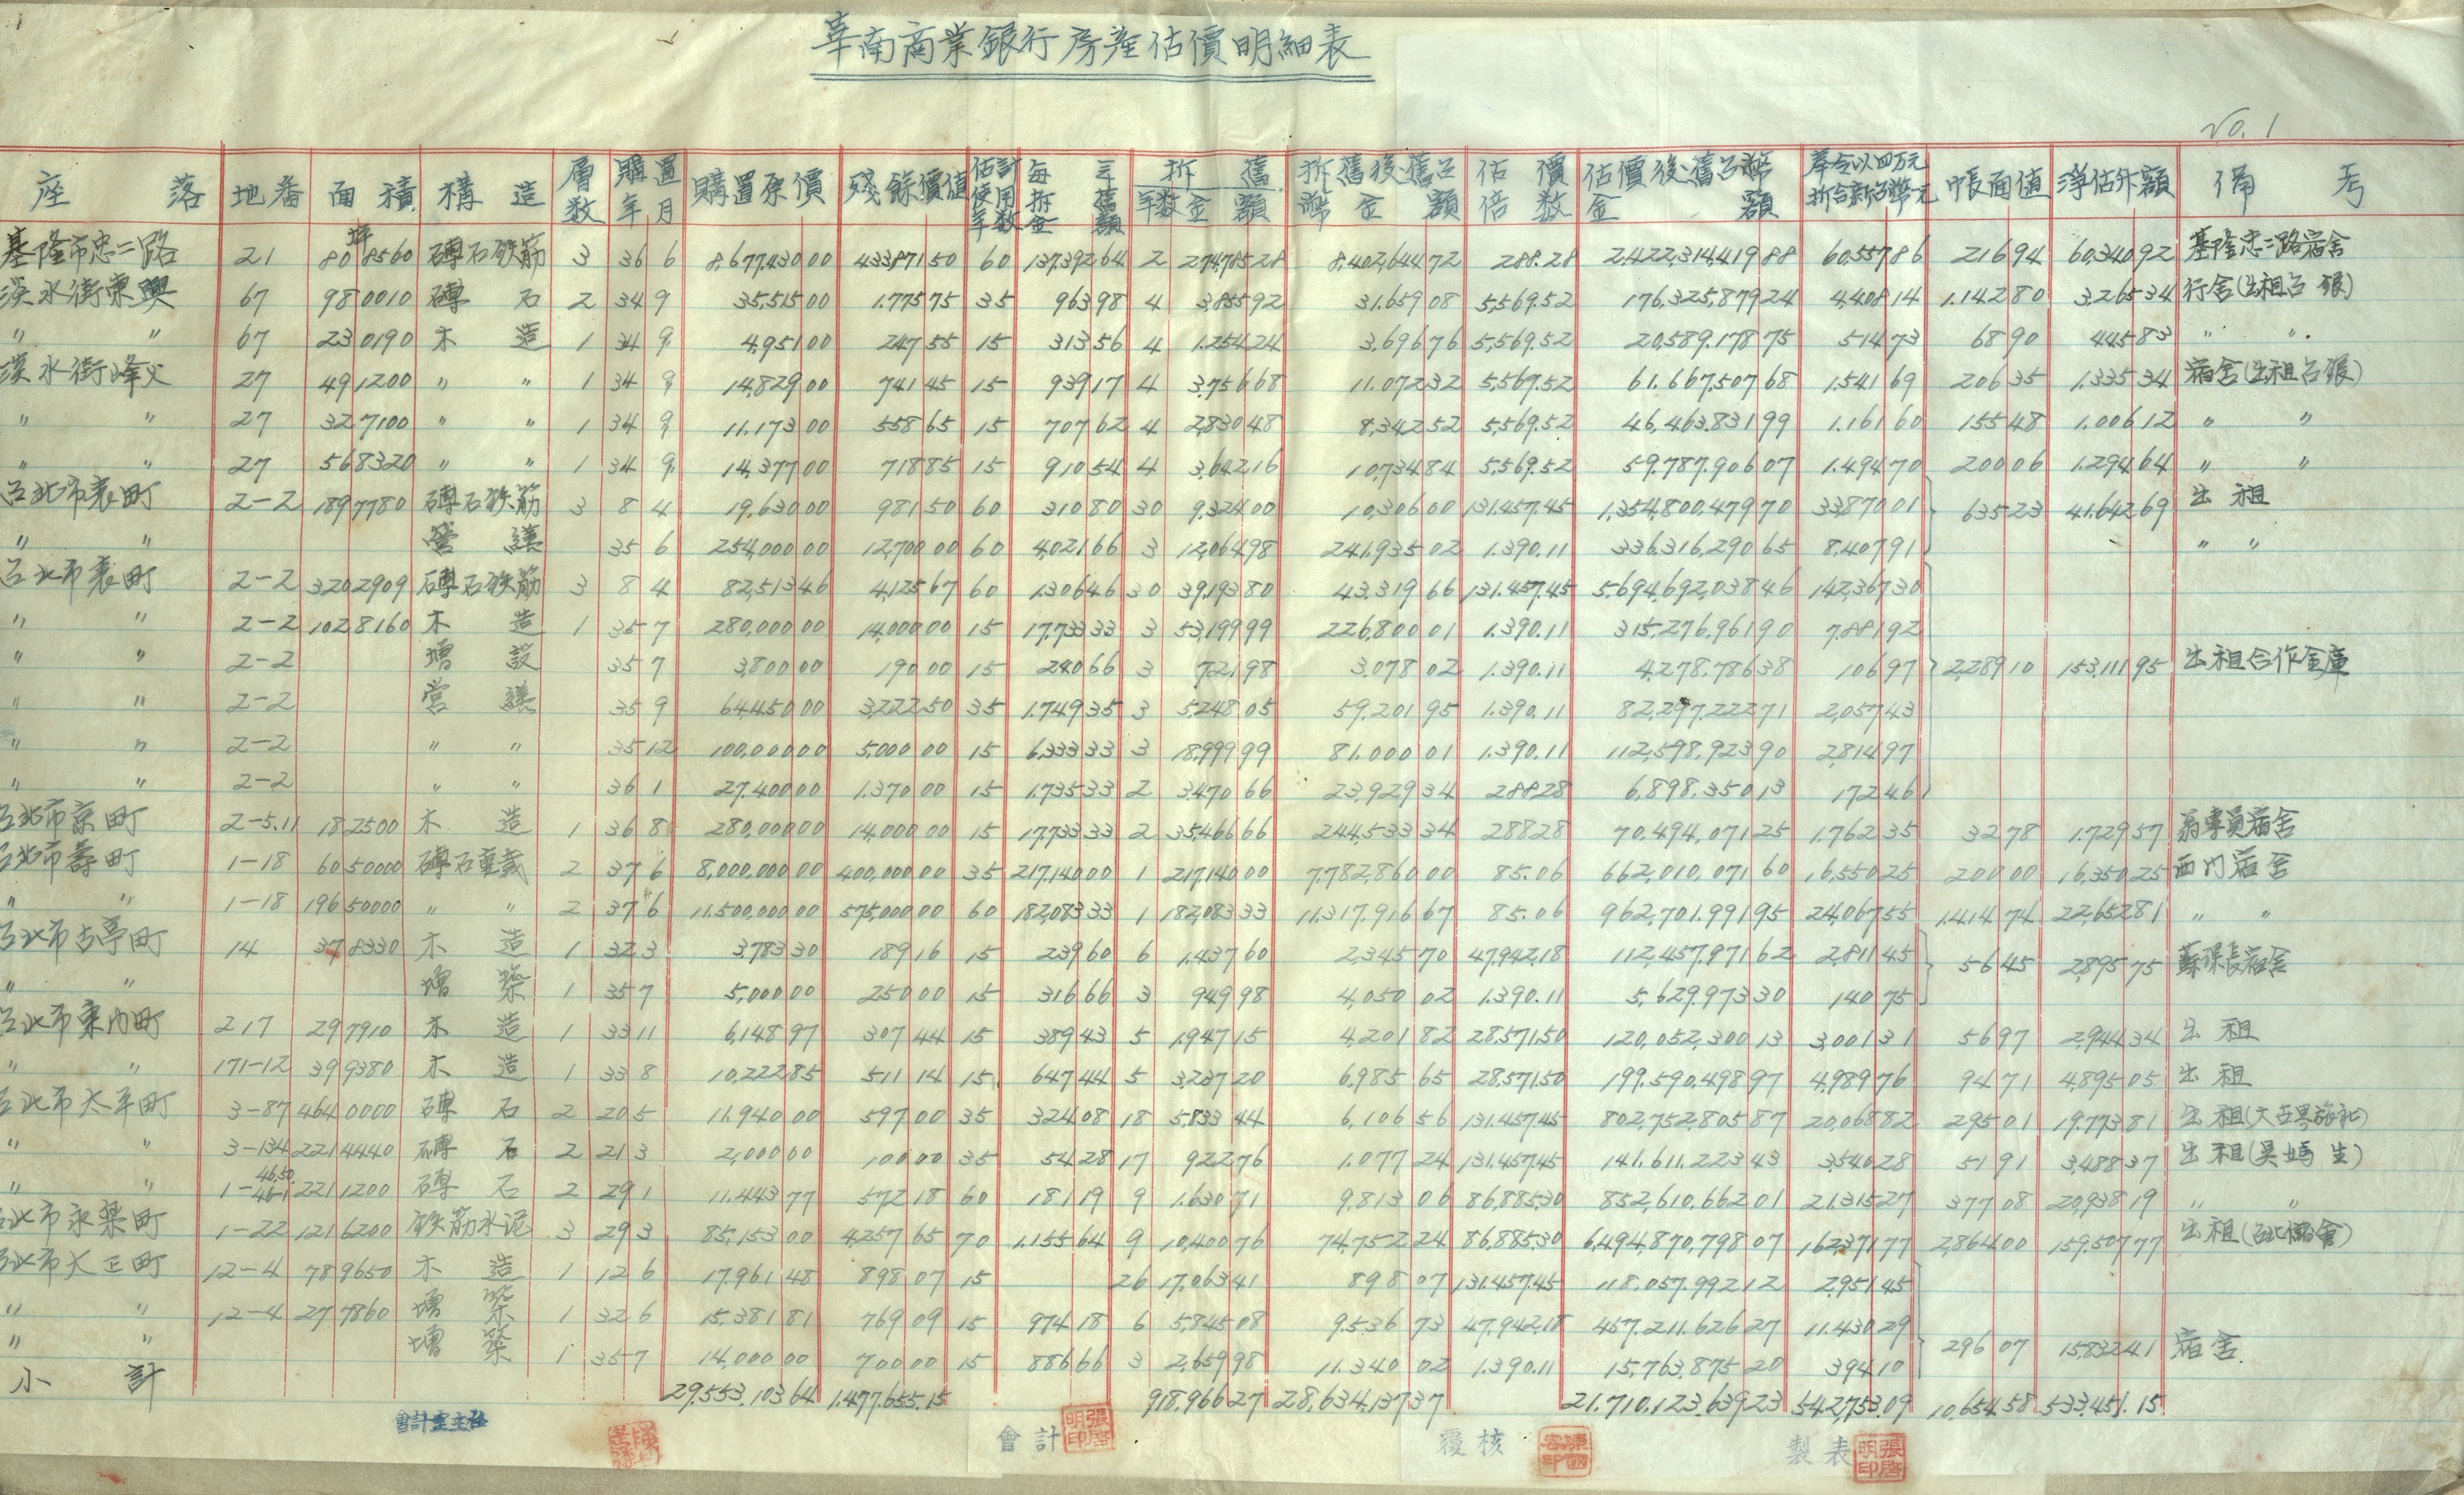 華南商業銀行房産估價明細表
No. 1
座落 地番 面積 構造 層数 購置年月 購置原價 殘餘價值 估計使用年数 每年折舊金額 折舊 年数 金額 折舊後舊台幣金額 估價倍数 估價後舊台幣金額 奉令以四万元折合新台幣一元 帳面值 淨估外額 備考
基隆市忠二路 21 坪 80 8560 磚石鉄筋 3 36 6 8,677,430 00 433,871 50 60 137,392 64 2 274,785 28 8,402,644 72 288.28 2,422,314,419 88 60,557 86 216 94 60,340 92 基隆忠二路宿舍
淡水街東興 67 98 0010 磚石 2 34 9 35,515 00 1.775 75 35 963 98 4 3,855 92 31.659 08 5,569.52 176,325,879 24 4,408 14 1.142 80 3,265 34 行舍(出租台銀)
〃 〃 67 23 0190 木造 1 34 9 4,951 00 247 55 15 313 56 4 1.254 24 3,696 76 5,569.52 20,589.178 75 514 73 68 90 445 83 〃 〃
淡水街烽火 27 49 1200 〃 〃 1 34 9 14,829 00 741 45 15 939 17 4 3,756 68 11.072 32 5,567.52 61.667,507 68 1.541 69 206 35 1.335 34 宿舍(出租台銀)
〃 〃 27 32 7100 〃 〃 1 34 9 11.173 00 558 65 15 707 62 4 2,830 48 8,342 52 5,569.52 46,463.831 99 1.161 60 155 48 1.006 12 〃 〃
〃 〃 27 56 8320 〃 〃 1 34 9 14,377 00 718 85 15 910 54 4 3,642 16 10,734 84 5,569.52 59.787.906 07 1.494 70 200 06 1.294 64 〃 〃
台北市表町 2-2 189 7780 磚石鉄筋 3 8 4 19.630 00 981 50 60 310 80 30 9.324 00 10,306 00 131.457.45 1,354,800,479 70 33,870 01 635 23 41,642 69 出租
〃 〃 營繕 35 6 254,000 00 12,700 00 60 4,021 66 3 12,064 98 241,935 02 1.390.11 336,316,290 65 8,407 91 〃 〃
台北市表町 2-2 320 2909 磚石鉄筋 3 8 4 82,513 46 4,125 67 60 1306 46 30 39,193 80 43,319 66 131.457.45 5,694,692,038 46 142,367 30
〃 〃 2-2 102 8160 木造 1 35 7 280,000 00 14,000 00 15 17,733 33 3 53,199 99 226,800 01 1.390.11 315,276,961 90 7,881 92
〃 〃 2-2 增設 35 7 3,800 00 190 00 15 240 66 3 721 98 3,078 02 1.390.11 4,278.786 38 106 97 2,289 10 153,111 95 出租合作金庫
〃 〃 2-2 營繕 35 9 64,450 00 3,222 50 35 1.749 35 3 5,248 05 59,201 95 1.390.11 82,297,222 71 2,057 43
〃 〃 2-2 〃 〃 35 12 100,000 00 5,000 00 15 6,333 33 3 18,999 99 81.000 01 1.390.11 112,598,923 90 2,814 97
〃 〃 2-2 〃 〃 36 1 27,400 00 1.370 00 15 1.735 33 2 3,470 66 23,929 34 288.28 6,898,350 13 172 46
台北市京町 2-5.11 18 2500 木造 1 36 8 280,000 00 14,000 00 15 17,733 33 2 35,466 66 244,533 34 288.28 70,494,071 25 1.762 35 32 78 1.729 57 翁專員宿舍
台北市壽町 1-18 60 50000 磚石重載 2 37 6 8,000,000 00 400,000 00 35 217,140 00 1 217,140 00 7,782,860 00 85.06 662,010,071 60 16,550 25 200 00 16,350 25 西門宿舍
〃 〃 1-18 196 50000 〃 〃 2 37 6 11.500,000 00 575,000 00 60 182,083 33 1 182,083 33 11.317,916 67 85.06 962,701.991 95 24,067 55 1.414 74 22,652 81 〃 〃
台北市古亭町 14 37 8330 木造 1 32 3 3,783 30 189 16 15 239 60 6 1.437 60 2,345 70 47,942.18 112,457,971 62 2,811 45 56 45 2,895 75 蘇課長宿舍
〃 〃 增築 1 35 7 5,000 00 250 00 15 316 66 3 949 98 4,050 02 1.390.11 5,629.973 30 140 75
台北市東門町 217 29 7910 木造 1 33 11 6,148 97 307 44 15 389 43 5 1,947 15 4,201 82 28.571.50 120,052,300 13 3,001 31 56 97 2,944 34 出租
〃 〃 171-12 39 9380 木造 1 33 8 10,222 85 511 14 15 647 44 5 3,237 20 6,985 65 28.571.50 199.590,498 97 4,989 76 94 71 4,895 05 出租
台北市太平町 3-87 464 0000 磚石 2 20 5 11.940 00 597 00 35 324 08 18 5,833 44 6,106 56 131.457.45 802,752,805 87 20,068 82 295 01 19.773 81 出租(大世界旅社)
〃 〃 3-134 221 4440 磚石 2 21 3 2,000 00 100 00 35 54 28 17 922 76 1.077 24 131.457.45 141.611.223 43 3,540 28 51 91 3,488 37 出租(吳嫣生)
〃 〃 1-46.50 46-1 221 1200 磚石 2 29 1 11.443 77 572 18 60 181 19 9 1.630 71 9,813 06 86,885.30 852,610,662 01 21.315 27 377 08 20,938 19 〃 〃
台北市永樂町 1-22 121 6200 鉄筋水泥 3 29 3 85,153 00 4,257 65 70 1.155 64 9 10,400 76 74,752 24 86,885.30 6,494,870,798 07 162,371 77 2,864 00 159,507 77
台北市大正町 12-4 78 9650 木造 1 12 6 17,961 48 898 07 15 26 17,063 41 898 07 131.457.45 118,057.992 12 2,951 45
〃 〃 12-4 27 7860 增築 1 32 6 15,381 81 769 09 15 974 18 6 5,845 08 9,536 73 47,942.18 457,211.626 27 11.430 29
〃 〃 增築 1 35 7 14,000 00 700 00 15 886 66 3 2,659 98 11.340 02 1.390.11 15,763,875 20 394 10 296 07 15,832 41 宿舍
小計 29,553,103 64 1,477,655.15 918,966 27 28,634,137 37 21,710,123,639 23 542,753.09 10,654.58 533,451.15
會計室主任 會計 張啓明印 覆核 製表 張啓明印